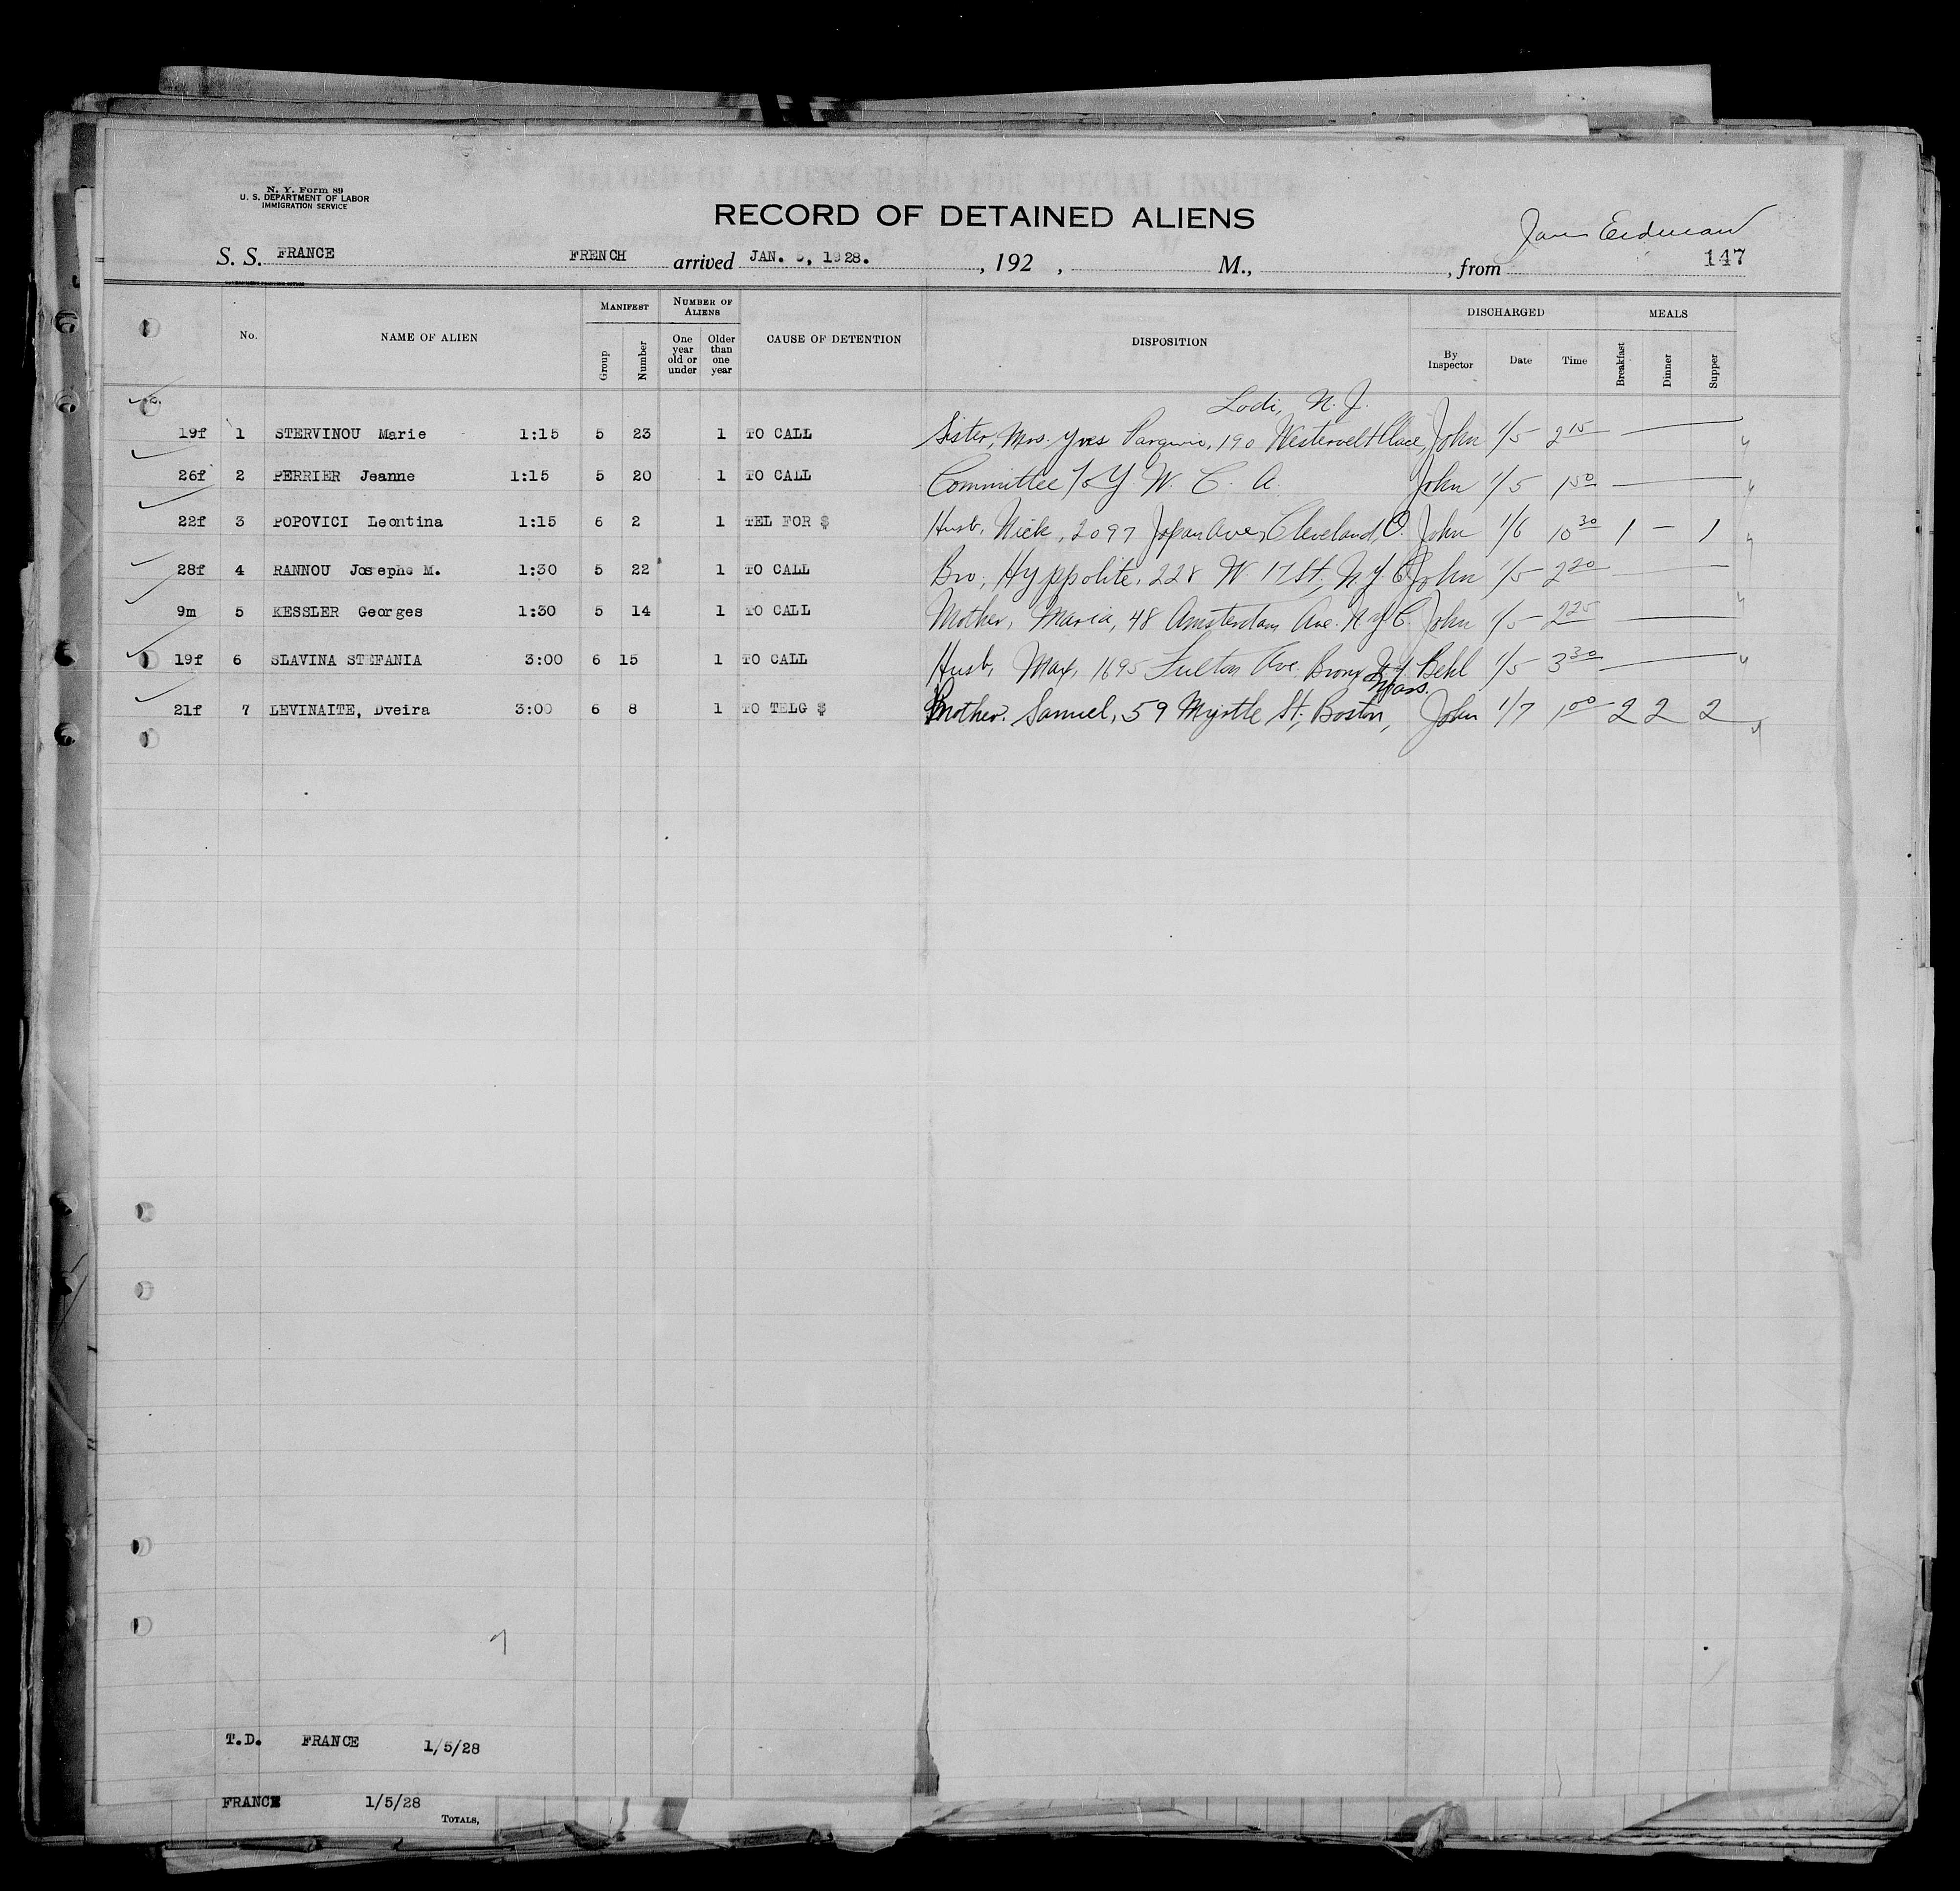 N. Y. Form 89
U. S. DEPARTMENT OF LABOR
IMMIGRATION SERVICE
RECORD OF DETAINED ALIENS
S. S. FRANCE FRENCH arrived JAN. 5, 1928. , 192 , M., , from 147
No. NAME OF ALIEN MANIFEST Group Number NUMBER OF ALIENS One year old or under Older than one year CAUSE OF DETENTION DISPOSITION DISCHARGED By Inspector Date Time MEALS Breakfast Dinner Supper
Lodi, N. J.
19f 1 STERVINOU Marie 1:15 5 23 1 TO CALL Sister, Mrs. Yves 190 Westervelt Place, John 1/5 2 15 —
26f 2 PERRIER Jeanne 1:15 5 20 1 TO CALL Committee Y. W. C. A. John 1/5 1 50 —
22f 3 POPOVICI Leontina 1:15 6 2 1 TEL FOR $ Husb, Nick, 2097 Cleveland, O. John 1/6 10 30 1 — 1
28f 4 RANNOU Josephe M. 1:30 5 22 1 TO CALL Bro, Hyppolite, 228 W. 17 St, N. Y. C. John 1/5 2 20 —
9m 5 KESSLER Georges 1:30 5 14 1 TO CALL Mother, Maria, 48 Amsterdam Ave. N. Y. C. John 1/5 2 25 —
19f 6 SLAVINA STEFANIA 3:00 6 15 1 TO CALL Husb, Max, 1695 Fulton Ave. Bronx N. Y. Behl 1/5 3 30 —
Mass.
21f 7 LEVINAITE, Dveira 3:00 6 8 1 TO TELG $ Brother. Samuel, 59 Myrtle St, Boston, John 1/7 1 00 2 2 2
7
T.D. FRANCE 1/5/28
FRANCE 1/5/28
TOTALS,